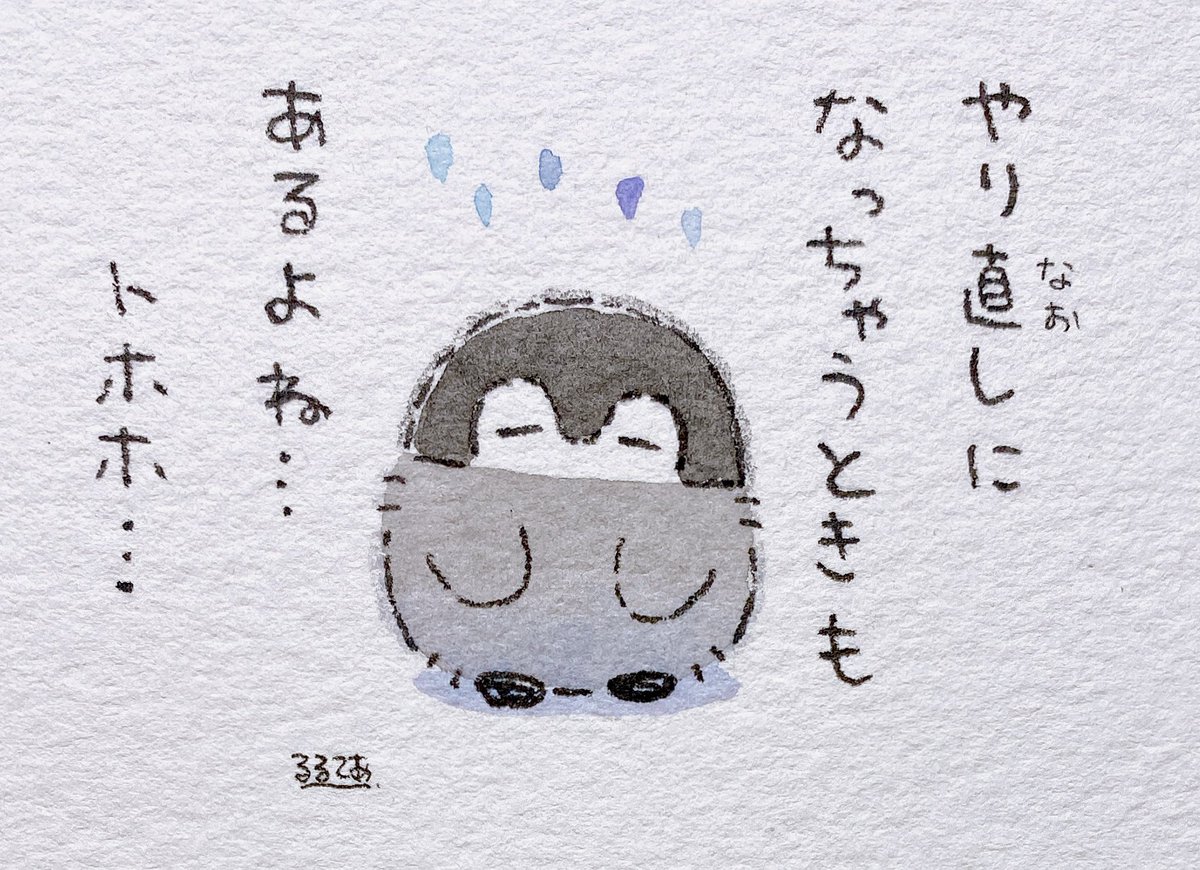 やり直しに
なお
なっちゃうときも
あるよね…
トホホ…
るるてあ